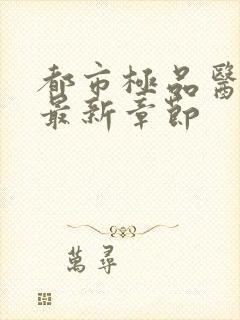 都市極品醫
最新章節
萬尋